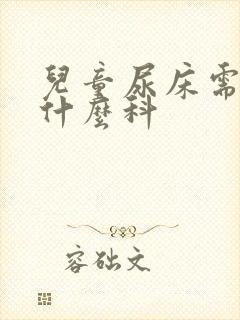 兒童尿床需
什麼科
容础文